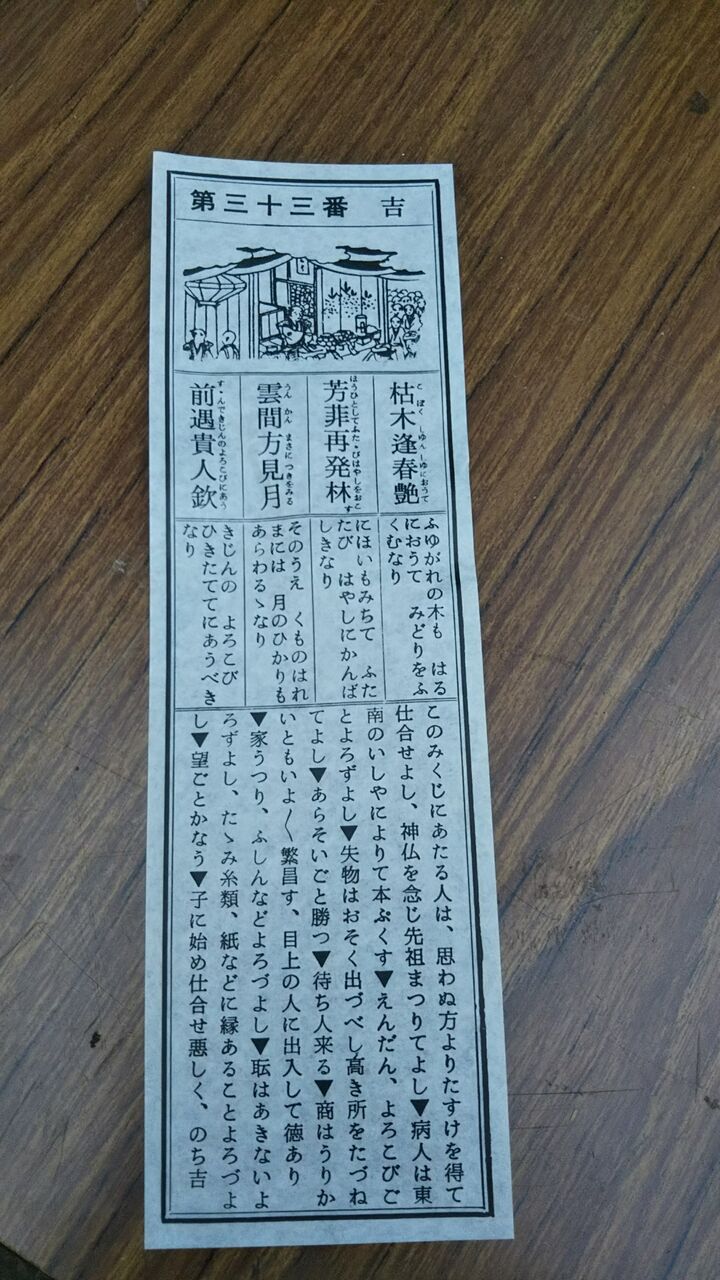 第三十三番 吉
枯木逢春艶
こぼくしゆんしゆにおうて
芳菲再発林
ほうひとしてふたゝびはやしをおこす
雲間方見月
うんかんまさにつきをみる
前遇貴人欽
すゝんできじんのよろこびにあう
ふゆがれの木も はる
におうて みどりをふ
くむなり
にほいもみちて ふた
たび はやしにかんば
しきなり
そのうえ くものはれ
まには 月のひかりも
あらわるゝなり
きじんの よろこび
ひきたててにあうべき
なり
このみくじにあたる人は、思わぬ方よりたすけを得て
仕合せよし、神仏を念じ先祖まつりてよし▼病人は東
南のいしやによりて本ぷくす▼えんだん、よろこびご
とよろずよし▼失物はおそく出づべし高き所をたづね
てよし▼あらそいごと勝つ▼待ち人来る▼商はうりか
いともいよ〳〵繁昌す、目上の人に出入して徳あり
▼家うつり、ふしんなどよろづよし▼耺はあきないよ
ろずよし、たゝみ糸類、紙などに縁あることよろづよ
し▼望ごとかなう▼子に始め仕合せ悪しく、のち吉